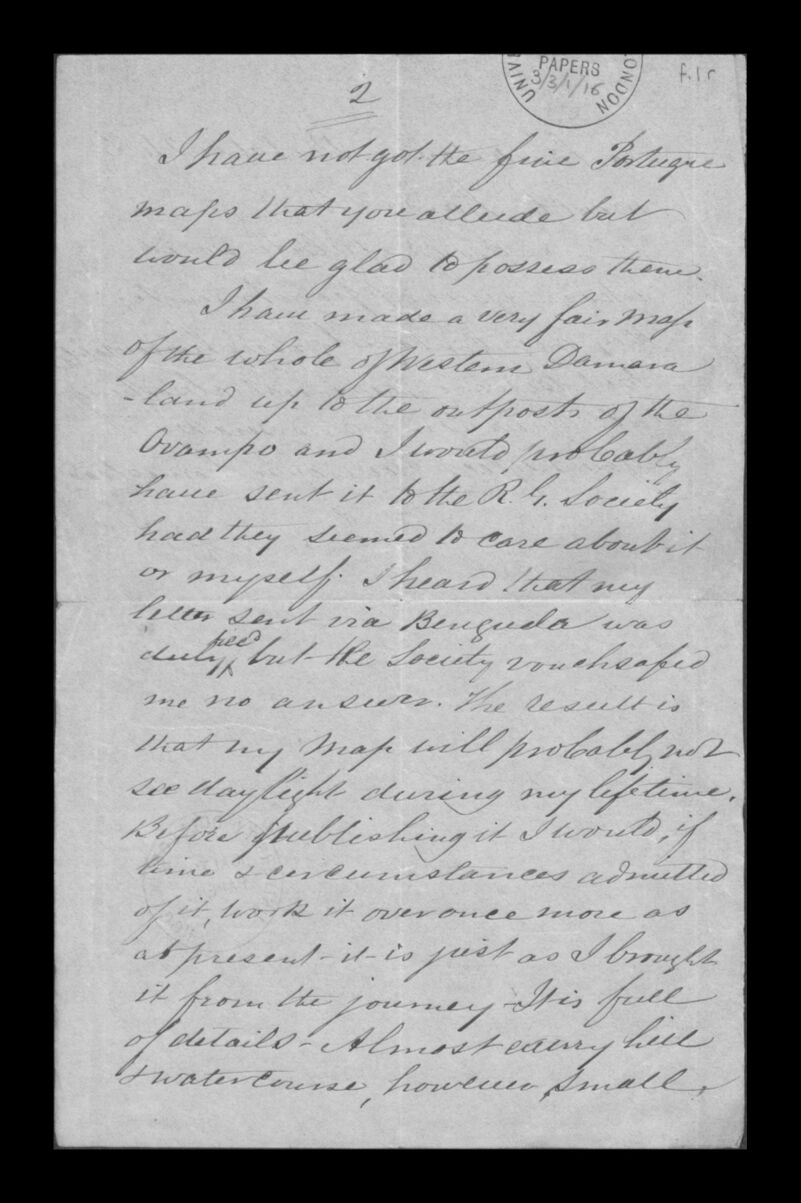 UNIV LONDON
PAPERS
3/3/1/16
f.1r
2
I have not got the fine Portugue
maps that you allude but
would be glad to possess them.
I have made a very fair map
of the whole of Western Damara
-land up to the outposts of the
Ovampo and I would probably
have sent it to the R. G. Society
had they seemed to care about it
or myself. I heard that my
letter sent via Benguela was
duly rec'd but the Society vouchsafed
me no answer. The result is
that my map will probably not
see daylight during my lifetime.
Before publishing it I would, if
time & circumstances admitted
of it, work it over once more as
at present - it is just as I brought
it from the journey - It is full
of details - Almost every hill
& watercourse, however, small,